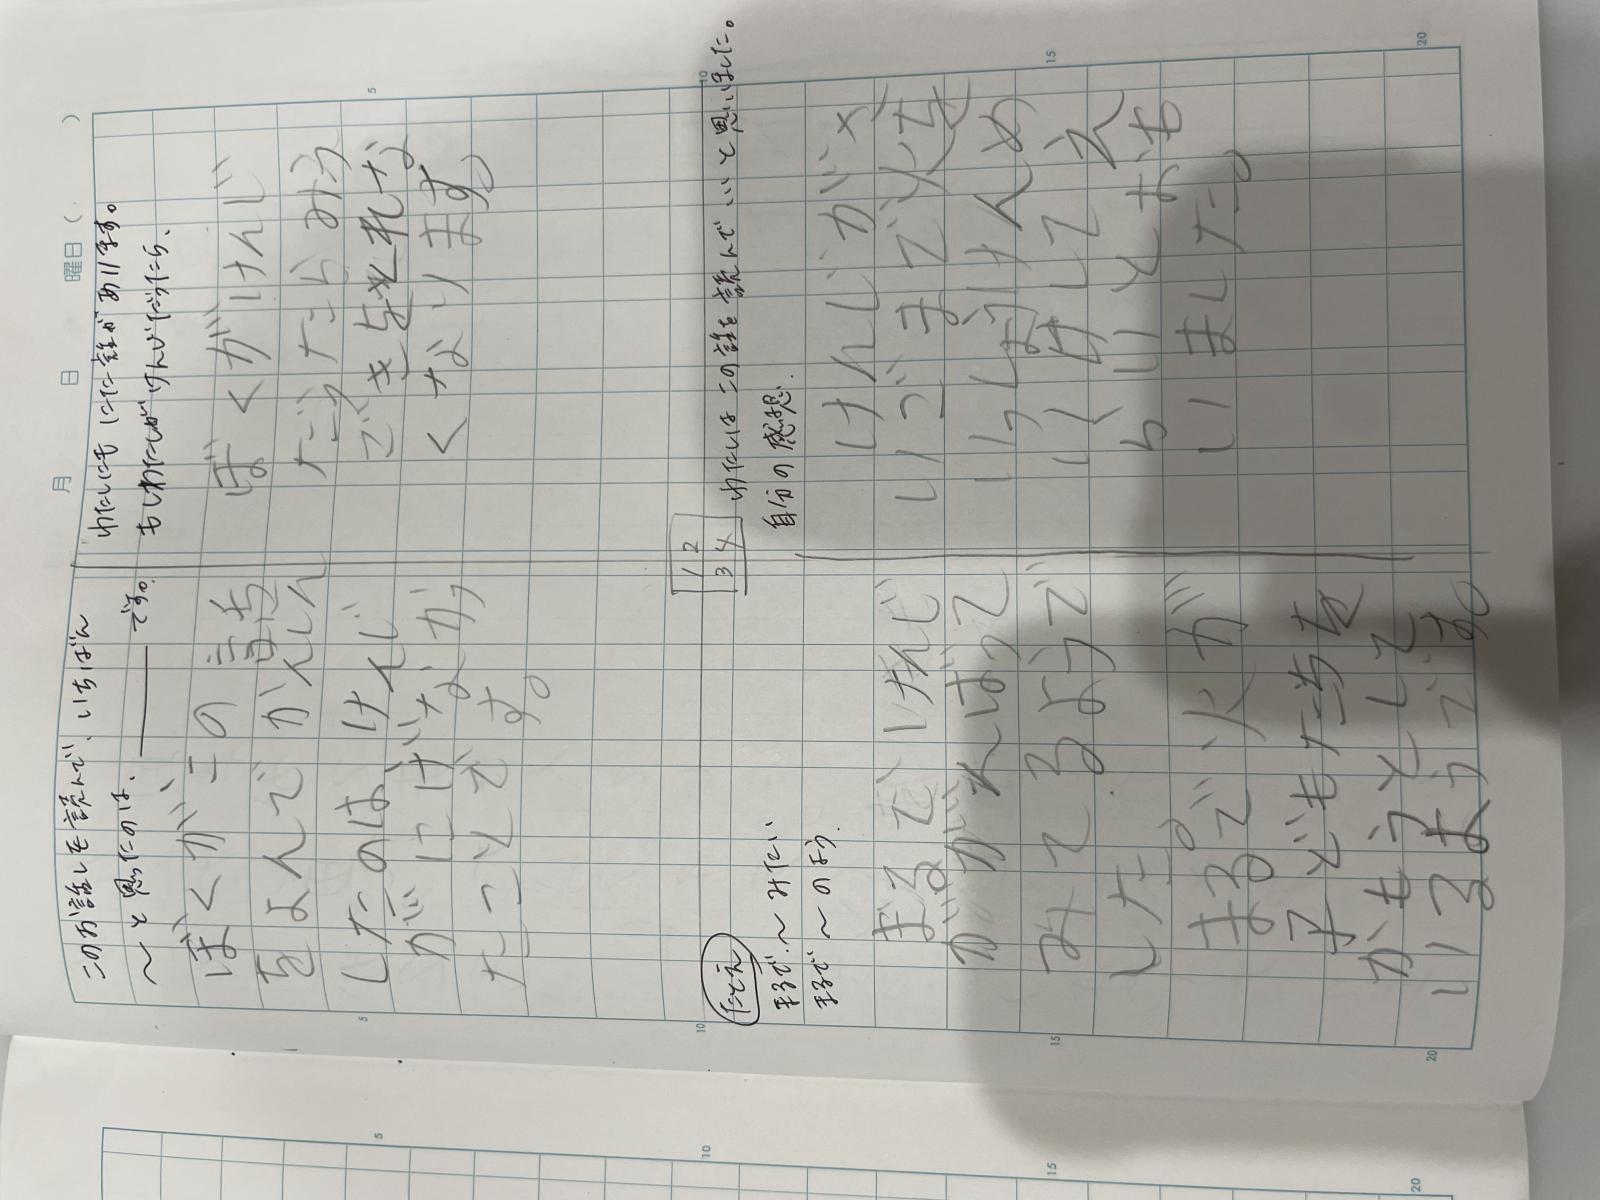 月 日 曜日( )
このお話しを読んで、いちばん
〜と思ったのは、 です。
ぼくが、この話
をよんでかんしん
したのはけんじ
がにげなかっ
たことです。
わたしにもにた話があります。
もしわたしがけんじだったら、
ぼくがけんじ
だったらみう
ごきをとれな
くなります。
5
10
1 2
3 4
たとえ
まるで〜みたい
まるで〜のよう
まるで
ががんばって
みてるようで
した。
まるで火が
子どもたちを
かもうとして
いるようです。
わたしはこの話を読んで、いいと思いました。
自分の感想
けんじが
まで火を
いっしょうけんめ
いけしてえ
らいとおも
いました。
15
20
5
10
15
20